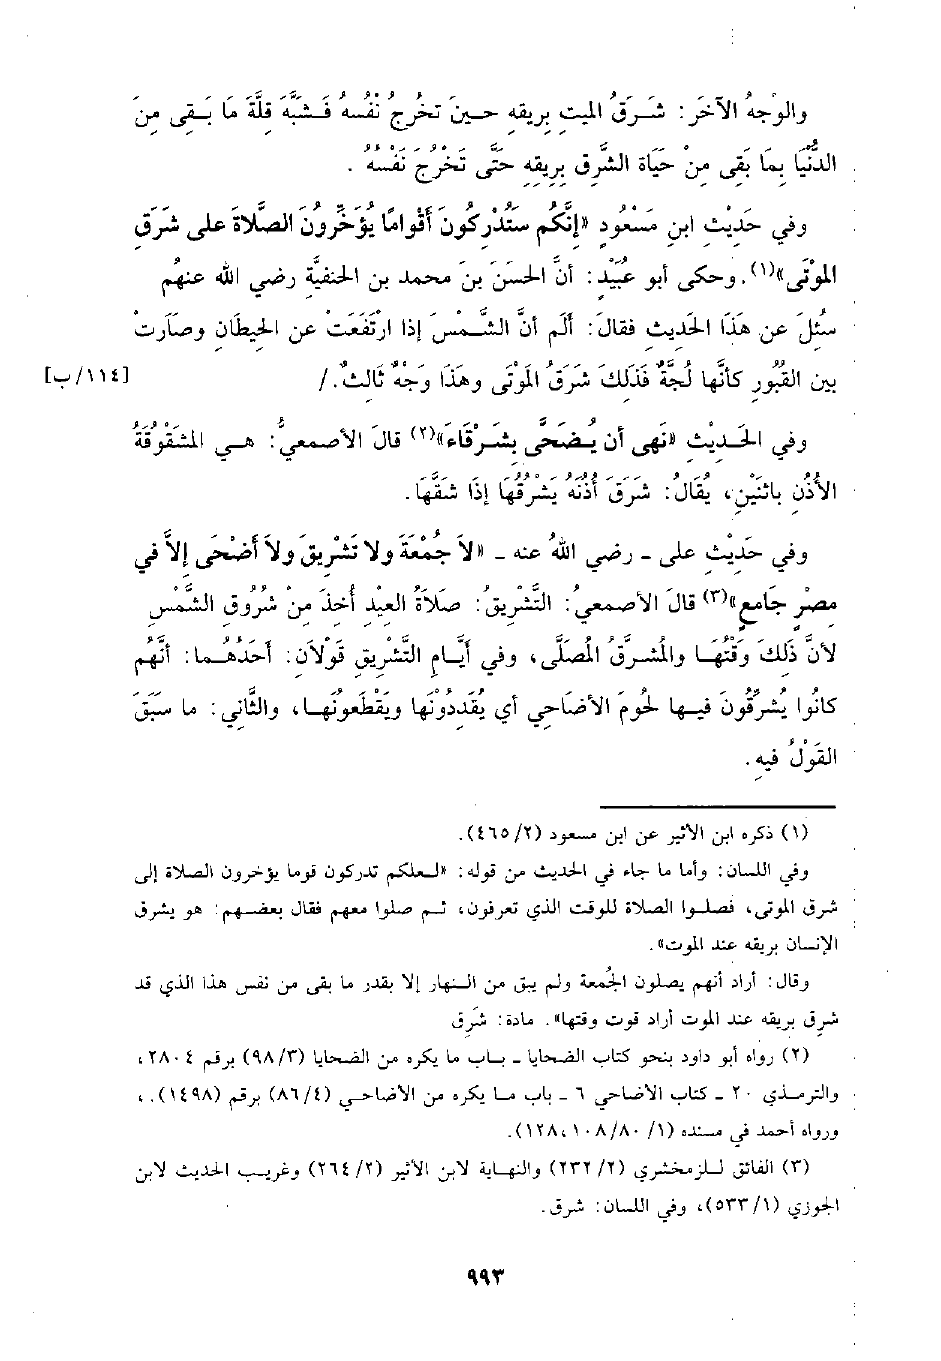 والوَجهُ الآخَر: شَرَقُ الميت بِرِيقِهِ حينَ تخرُج نفْسهُ فَشَبَّهَ قِلَّةَ مَا بَقى مِنَ
الدُّنْيا بِمَا بَقى مِنْ حَيَاة الشَّرِقِ بِرِيقِهِ حتَّى تَخْرُجَ نَفْسُهُ .
وفي حَدِيْث ابنِ مَسْعُودٍ «إنَّكُم ستُدْركُونَ أَقْوامًا يُؤَخِّرُونَ الصَّلاةَ على شَرَقِ
الموْتَى»(١). وحكى أبو عُبَيْدٍ: أنَّ الحَسَنَ بنَ محمد بن الحنفيَّةِ رضي الله عنهُم
سُئلَ عن هَذَا الحَديث فقالَ: أَلَم أنَّ الشَّمْسَ إذا ارْتَفَعَتْ عن الحِيطَانِ وصَارتْ
بين القُبُور كأنَّها لُجَّةٌ فَذَلكَ شَرَقُ الموْتَى وهَذَا وَجْهٌ ثَالثٌ./
[١١٤/ب]
وفي الحَديْث «نَهى أن يُضَحَّى بشَرْقَاءَ»(٢) قالَ الأصمعيُّ: هي المشْقُوقةُ
الأُذُنِ باثنَيْنِ، يُقَالُ: شَرَقَ أُذُنَهُ يَشْرُقُهَا إذَا شَقَّهَا.
وفي حَدِيْثِ على - رضي اللهُ عنه - «لاَ جُمْعَةَ ولا تَشْرِيقَ ولاَ أَضْحَى إلاَّ في
مِصْرٍ جَامِعٍ»(٣) قالَ الأصمعيُ: التَّشْرِيقُ: صَلاَةُ العِيْدِ أُخذَ مِنْ شُرُوقِ الشَّمْسِ
لأنَّ ذَلِكَ وَقْتُهَا والمُشرَّقُ المُصلَّى، وفي أيَّامِ التَّشْرِيقِ قَولاَن: أحَدُهُما: أنَّهم
كانُوا يُشرِّقُونَ فيها لحُومَ الأضَاحي أي يُقَدِدُوْنَها ويَقْطَعونَها، والثَّانِي: ما سَبَقَ
القَوْلُ فيهِ .
(١) ذكره ابن الأثير عن ابن مسعود (٤٦٥/٢).
وفي اللسان: وأما ما جاء في الحديث من قوله: «لعلكم تدركون قوما يؤخرون الصلاة إلى
شرق الموتى، فصلوا الصلاة للوقت الذي تعرفون، ثم صلوا معهم فقال بعضهم: هو يشرق
الإنسان بريقه عند الموت».
وقال: أراد أنهم يصلون الجُمعة ولم يبق من النهار إلا بقدر ما بقى من نفس هذا الذي قد
شرق بريقه عند الموت أراد قوت وقتها». مادة: شَرق
(٢) رواه أبو داود بنحو كتاب الضحايا - باب ما يكره من الضحايا (٩٨/٣) برقم ٢٨٠٤،
والترمذي ٢٠ - كتاب الأضاحي ٦ - باب ما يكره من الأضاحي (٨٦/٤) برقم (١٤٩٨).،
ورواه أحمد في مسنده (١/ ١٢٨،١٠٨/٨٠).
(٣) الفائق للزمخشري (٢/ ٢٣٢) والنهاية لابن الأثير (٢/ ٢٦٤) وغريب الحديث لابن
الجوزي (٥٣٣/١)، وفي اللسان: شرق.
٩٩٣